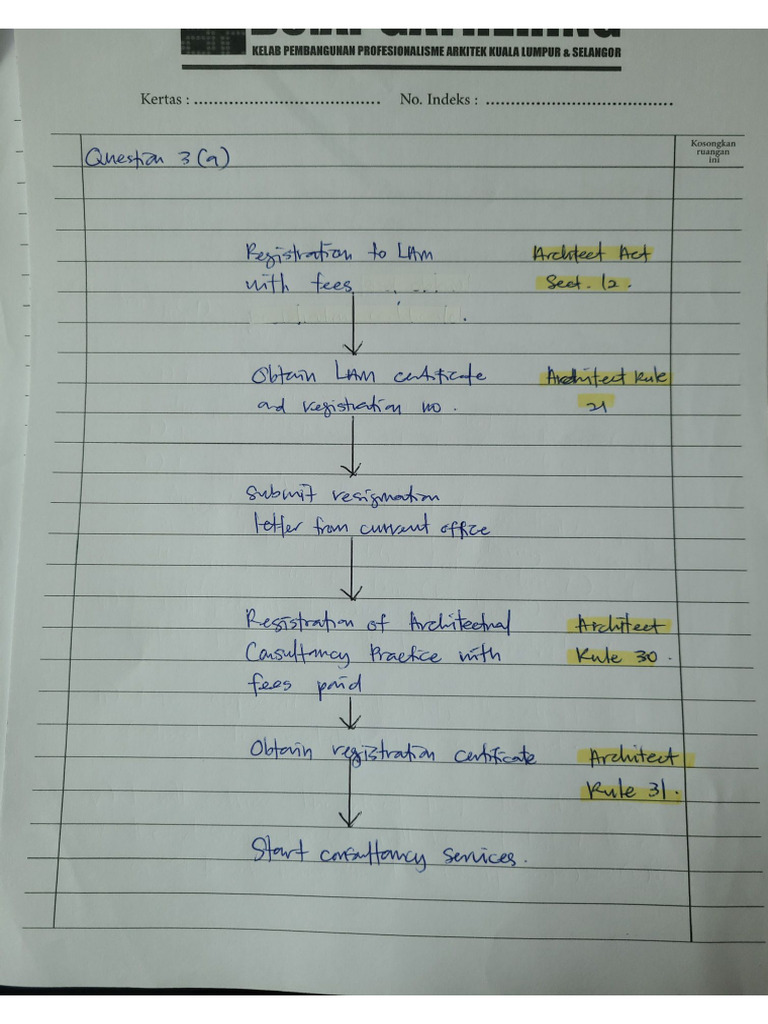 KELAB PEMBANGUNAN PROFESIONALISME ARKITEK KUALA LUMPUR & SELANGOR
Kertas : ................................... No. Indeks : ...................................
Kosongkan
ruangan
ini
Question 3 (a)
Registration to LAM Architect Act
with fees Sect. 12.
Obtain LAM certificate Architect Rule
and registration no. 21
Submit resignation
letter from current office
Registration of Architectural Architect
Consultancy Practice with Rule 30.
fees paid
Obtain registration certificate Architect
Rule 31.
Start consultancy services.